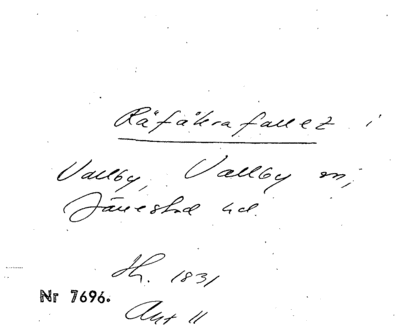 Råfåkrafallet i
Vallby, Vallby sn,
Järrestad hd.
Sk. 1831
Nr 7696.
Akt 11